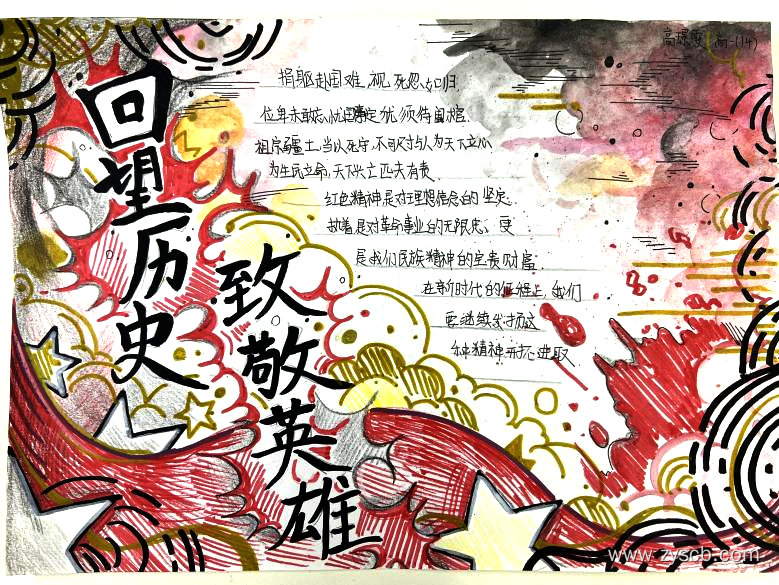 高一(14)
回望历史
致敬英雄
捐躯赴国难,视死忽如归.
位卑未敢忘忧国,事定犹须待阖棺.
祖宗疆土,当以死守,不可尺寸与人为天下立心
为生民立命,天下兴亡匹夫有责.
红色精神是对理想信念的坚定.
执着是对革命事业的无限忠、更
是我们民族精神的宝贵财富
在新时代的征程上,我们
要继续发扬这
种精神开拓进取
www.zyscb.com